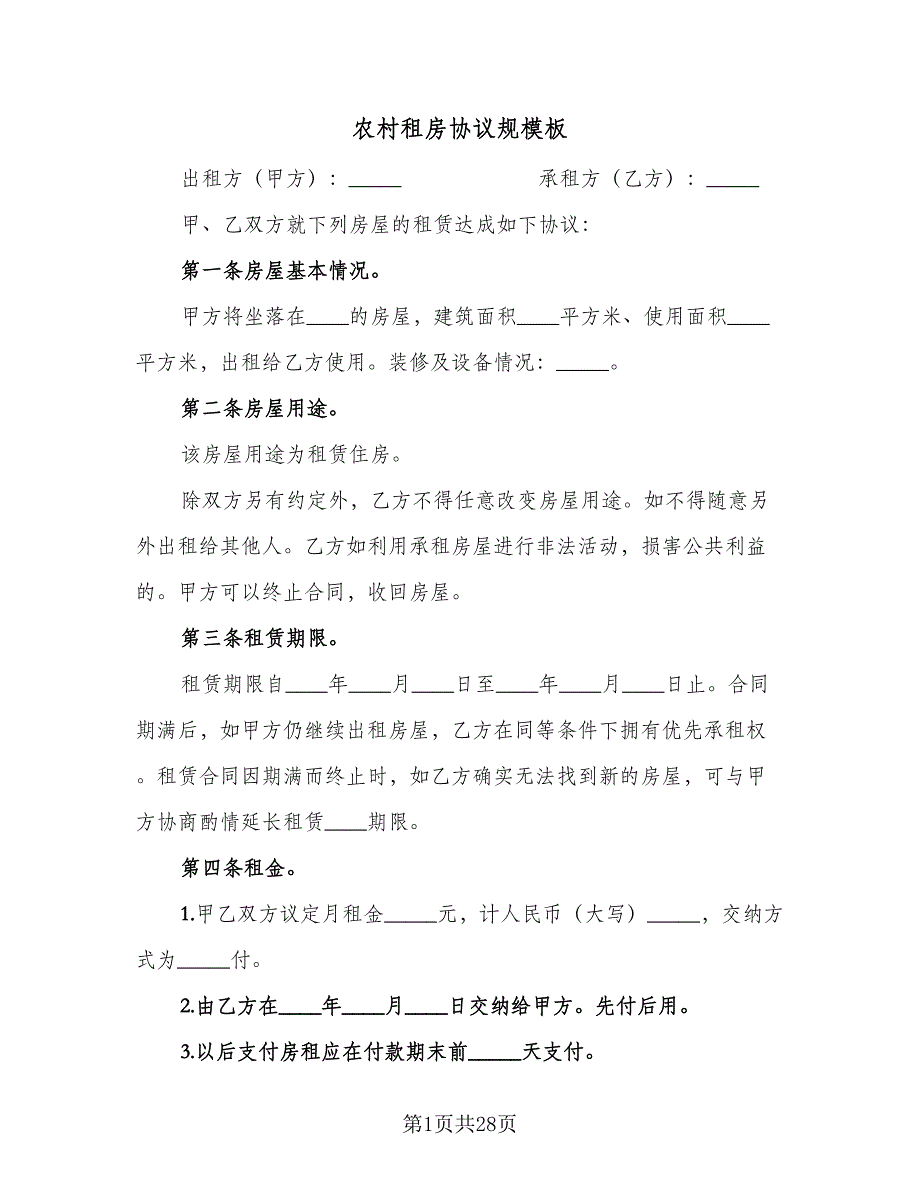 农村租房协议规模板
出租方（甲方）：_____ 承租方（乙方）：_____
甲、乙双方就下列房屋的租赁达成如下协议：
第一条房屋基本情况。
甲方将坐落在____的房屋，建筑面积____平方米、使用面积____
平方米，出租给乙方使用。装修及设备情况：_____。
第二条房屋用途。
该房屋用途为租赁住房。
除双方另有约定外，乙方不得任意改变房屋用途。如不得随意另
外出租给其他人。乙方如利用承租房屋进行非法活动，损害公共利益
的。甲方可以终止合同，收回房屋。
第三条租赁期限。
租赁期限自____年____月____日至____年____月____日止。合同
期满后，如甲方仍继续出租房屋，乙方在同等条件下拥有优先承租权
。租赁合同因期满而终止时，如乙方确实无法找到新的房屋，可与甲
方协商酌情延长租赁____期限。
第四条租金。
1.甲乙双方议定月租金_____元，计人民币（大写）_____，交纳方
式为_____付。
2.由乙方在____年____月____日交纳给甲方。先付后用。
3.以后支付房租应在付款期末前_____天支付。
第1页共28页